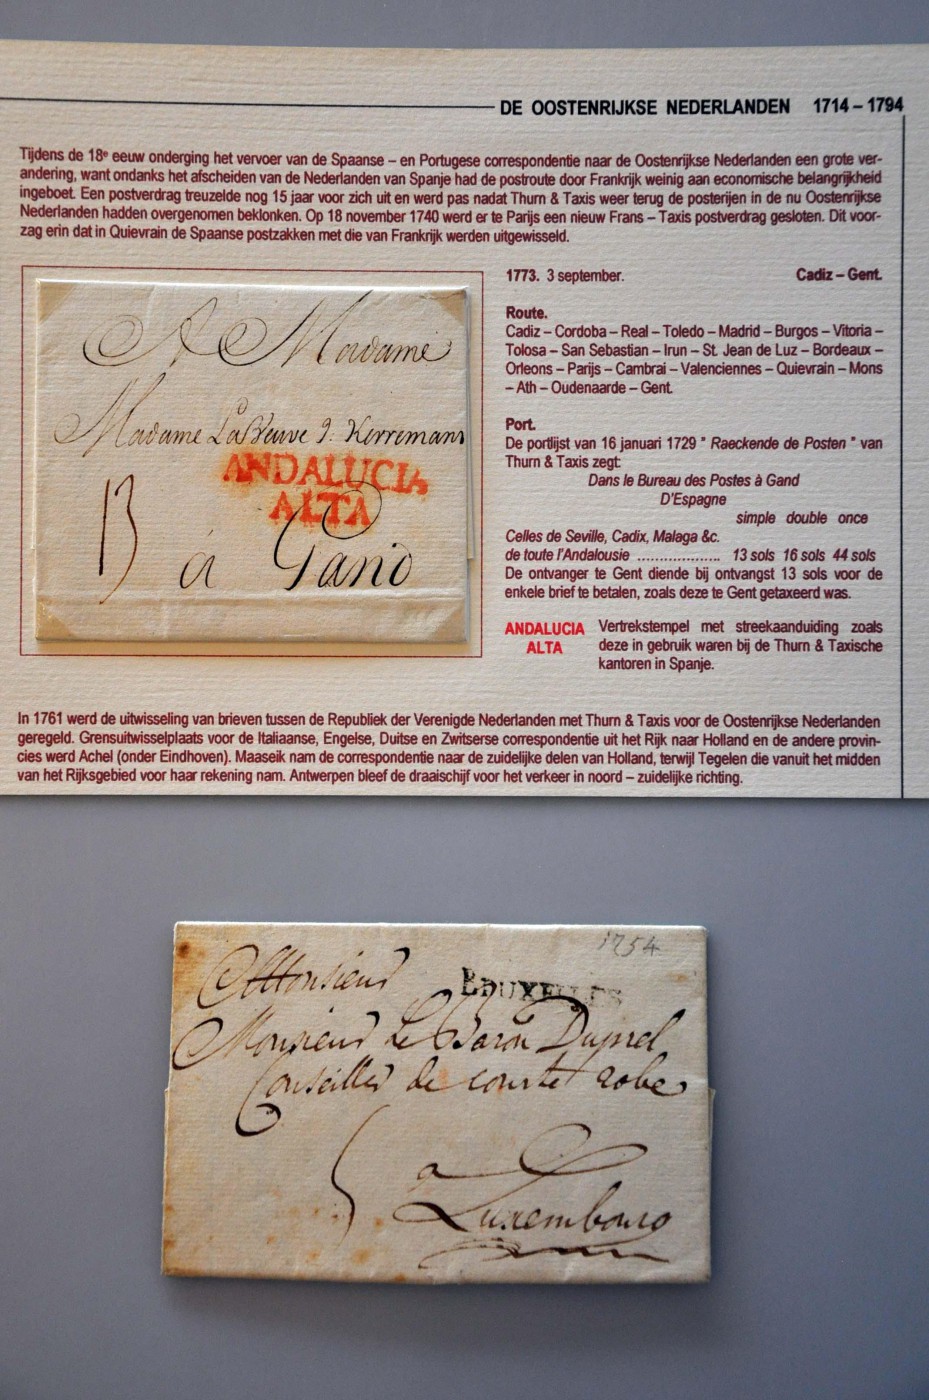 DE OOSTENRIJKSE NEDERLANDEN 1714 – 1794
Tijdens de 18e eeuw onderging het vervoer van de Spaanse – en Portugese correspondentie naar de Oostenrijkse Nederlanden een grote ver-
andering, want ondanks het afscheiden van de Nederlanden van Spanje had de postroute door Frankrijk weinig aan economische belangrijkheid
ingeboet. Een postverdrag treuzelde nog 15 jaar voor zich uit en werd pas nadat Thurn & Taxis weer terug de posterijen in de nu Oostenrijkse
Nederlanden hadden overgenomen beklonken. Op 18 november 1740 werd er te Parijs een nieuw Frans – Taxis postverdrag gesloten. Dit voor-
zag erin dat in Quievrain de Spaanse postzakken met die van Frankrijk werden uitgewisseld.
A Madame
Madame La Veuve J: Kerremans
ANDALUCIA
ALTA
13
á Gand
1773. 3 september. Cadiz – Gent.
Route.
Cadiz – Cordoba – Real – Toledo – Madrid – Burgos – Vitoria –
Tolosa – San Sebastian – Irun – St. Jean de Luz – Bordeaux –
Orleons – Parijs – Cambrai – Valenciennes – Quievrain – Mons
– Ath – Oudenaarde – Gent.
Port.
De portlijst van 16 januari 1729 " Raeckende de Posten " van
Thurn & Taxis zegt:
Dans le Bureau des Postes à Gand
D'Espagne
simple double once
Celles de Seville, Cadix, Malaga &c.
de toute l'Andalousie ................... 13 sols 16 sols 44 sols
De ontvanger te Gent diende bij ontvangst 13 sols voor de
enkele brief te betalen, zoals deze te Gent getaxeerd was.
ANDALUCIA
ALTA
Vertrekstempel met streekaanduiding zoals
deze in gebruik waren bij de Thurn & Taxische
kantoren in Spanje.
In 1761 werd de uitwisseling van brieven tussen de Republiek der Verenigde Nederlanden met Thurn & Taxis voor de Oostenrijkse Nederlanden
geregeld. Grensuitwisselplaats voor de Italiaanse, Engelse, Duitse en Zwitserse correspondentie uit het Rijk naar Holland en de andere provin-
cies werd Achel (onder Eindhoven). Maaseik nam de correspondentie naar de zuidelijke delen van Holland, terwijl Tegelen die vanuit het midden
van het Rijksgebied voor haar rekening nam. Antwerpen bleef de draaischijf voor het verkeer in noord – zuidelijke richting.
1754
Monsieur
BRUXELLES
Monsieur Le Baron
Conseiller de courte robe
5
a
Luxembourg